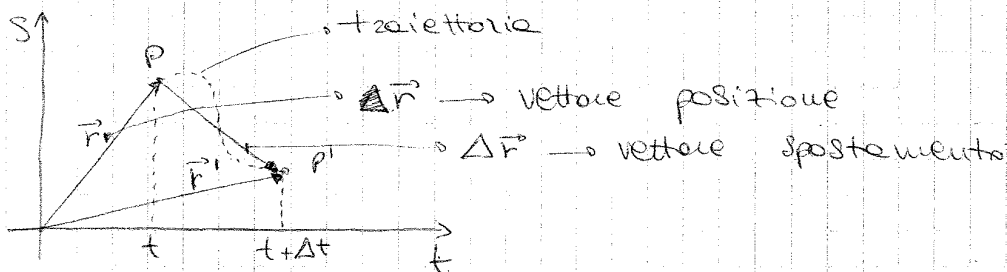 S
traiettoria
P
Δr⃗ → vettore posizione
r⃗
Δr⃗ → vettore spostamento
r⃗' P'
t t+Δt t